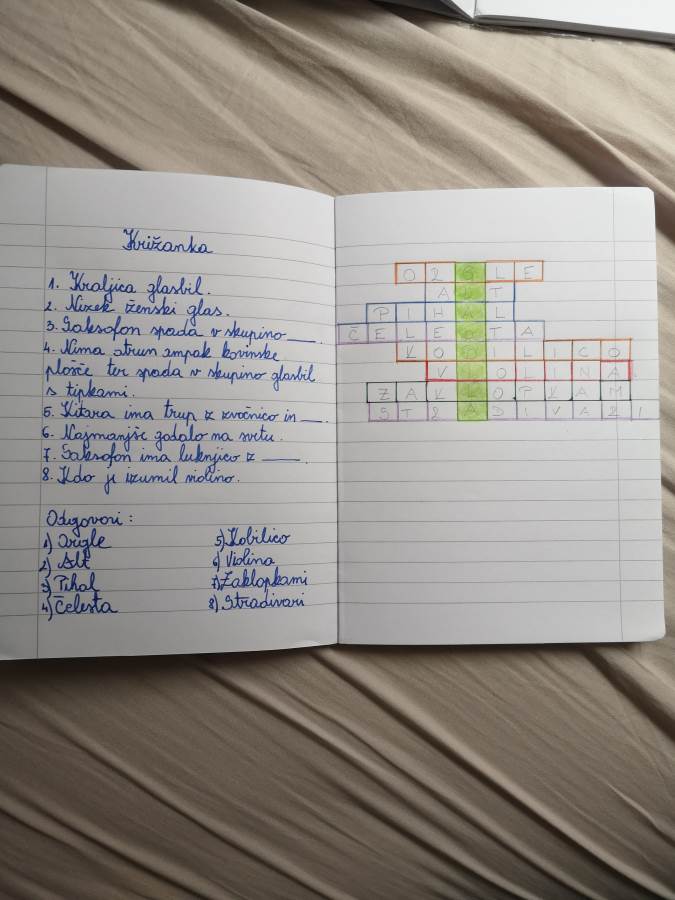 Križanka
1. Kraljica glasbil.
2. Nizek ženski glas.
3. Saksofon spada v skupino ___.
4. Nima strun ampak kovinske
plošče ter spada v skupino glasbil
s tipkami.
5. Kitara ima trup z zvočnico in ___.
6. Najmanjše godalo na svetu.
7. Saksofon ima luknjico z ___.
8. Kdo je izumil violino.
Odgovori:
1) Orgle
2) Alt
3) Pihal
4) Čelesta
5) Kobilico
6) Violina
7) Zaklopkami
8) Stradivari
ORGLE
ALT
PIHAL
ČELESTA
KOBILICO
VIOLINA
ZAKLOPKAM
STRADIVARI